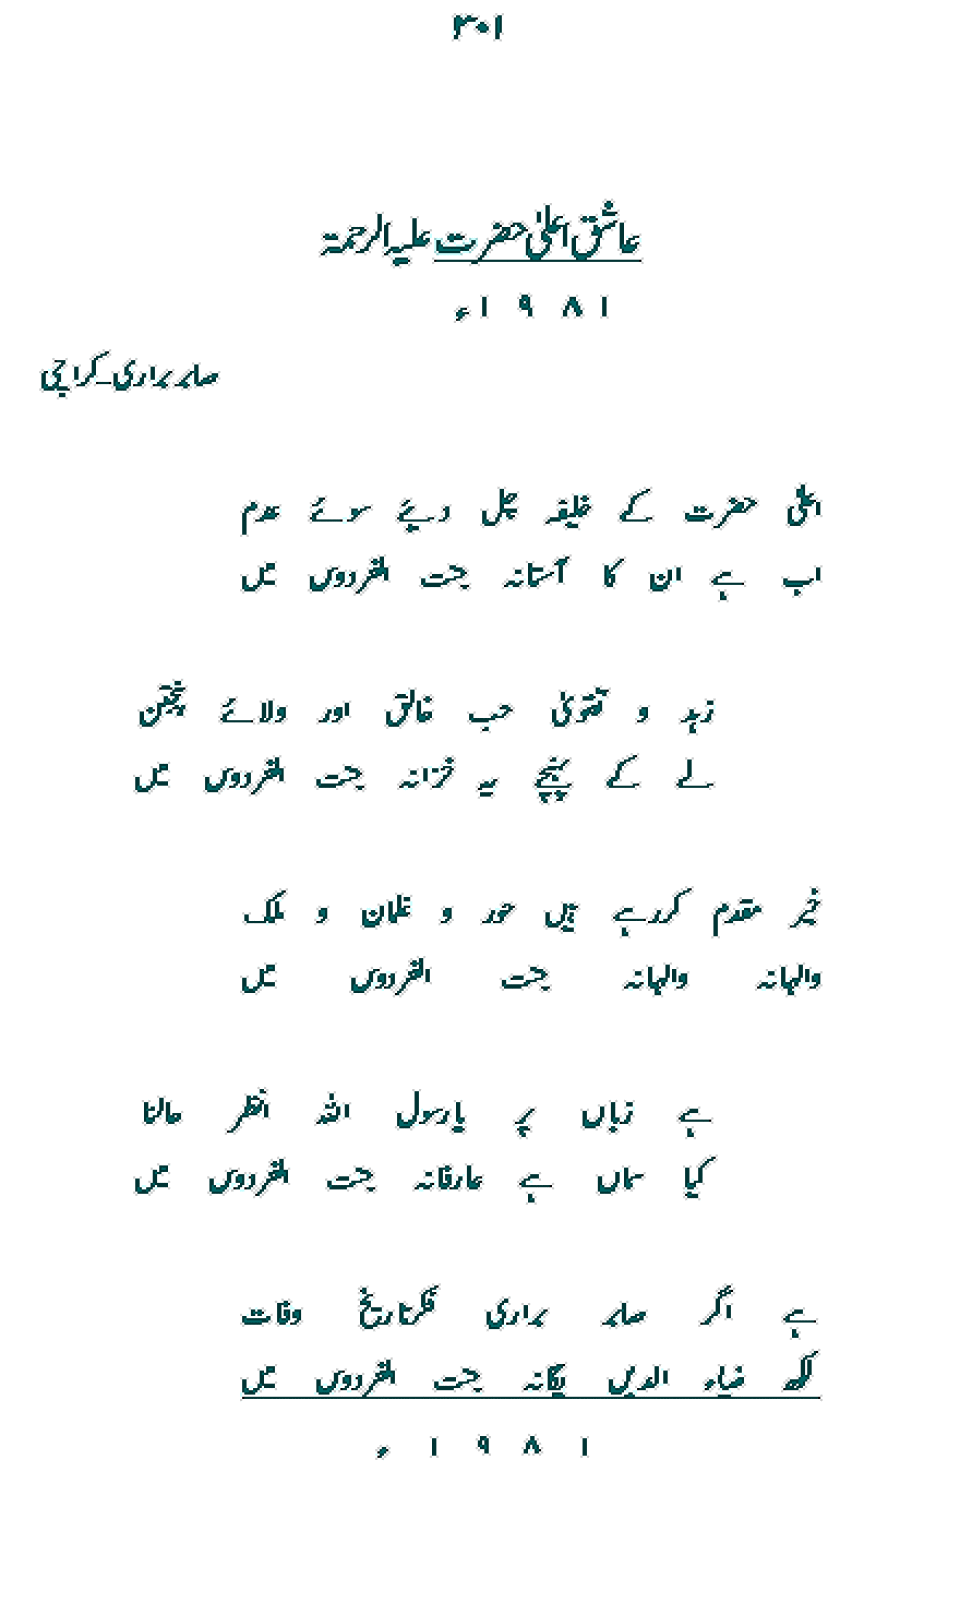 ۳۰۱
عاشق اعلیٰ حضرت علیہ الرحمۃ
۱ ۹ ۸ ۱ء
صابر براری۔ کراچی
اعلیٰ حضرت کے خلیفہ چل دیئے سوئے عدم
اب ہے ان کا آستانہ جنت الفردوس میں
زہد و تقویٰ حب خالق اور ولائے پنجتن
لے کے پہنچے یہ خزانہ جنت الفردوس میں
خیر مقدم کررہے ہیں حور و غلمان و ملک
والہانہ والہانہ جنت الفردوس میں
ہے زباں پر یارسول اللہ انظر حالنا
کیا سماں ہے عارفانہ جنت الفردوس میں
ہے اگر صابر براری فکر تاریخ وفات
لکھ ضیاء الدیں یگانہ جنت الفردوس میں
۱ ۹ ۸ ۱ ء